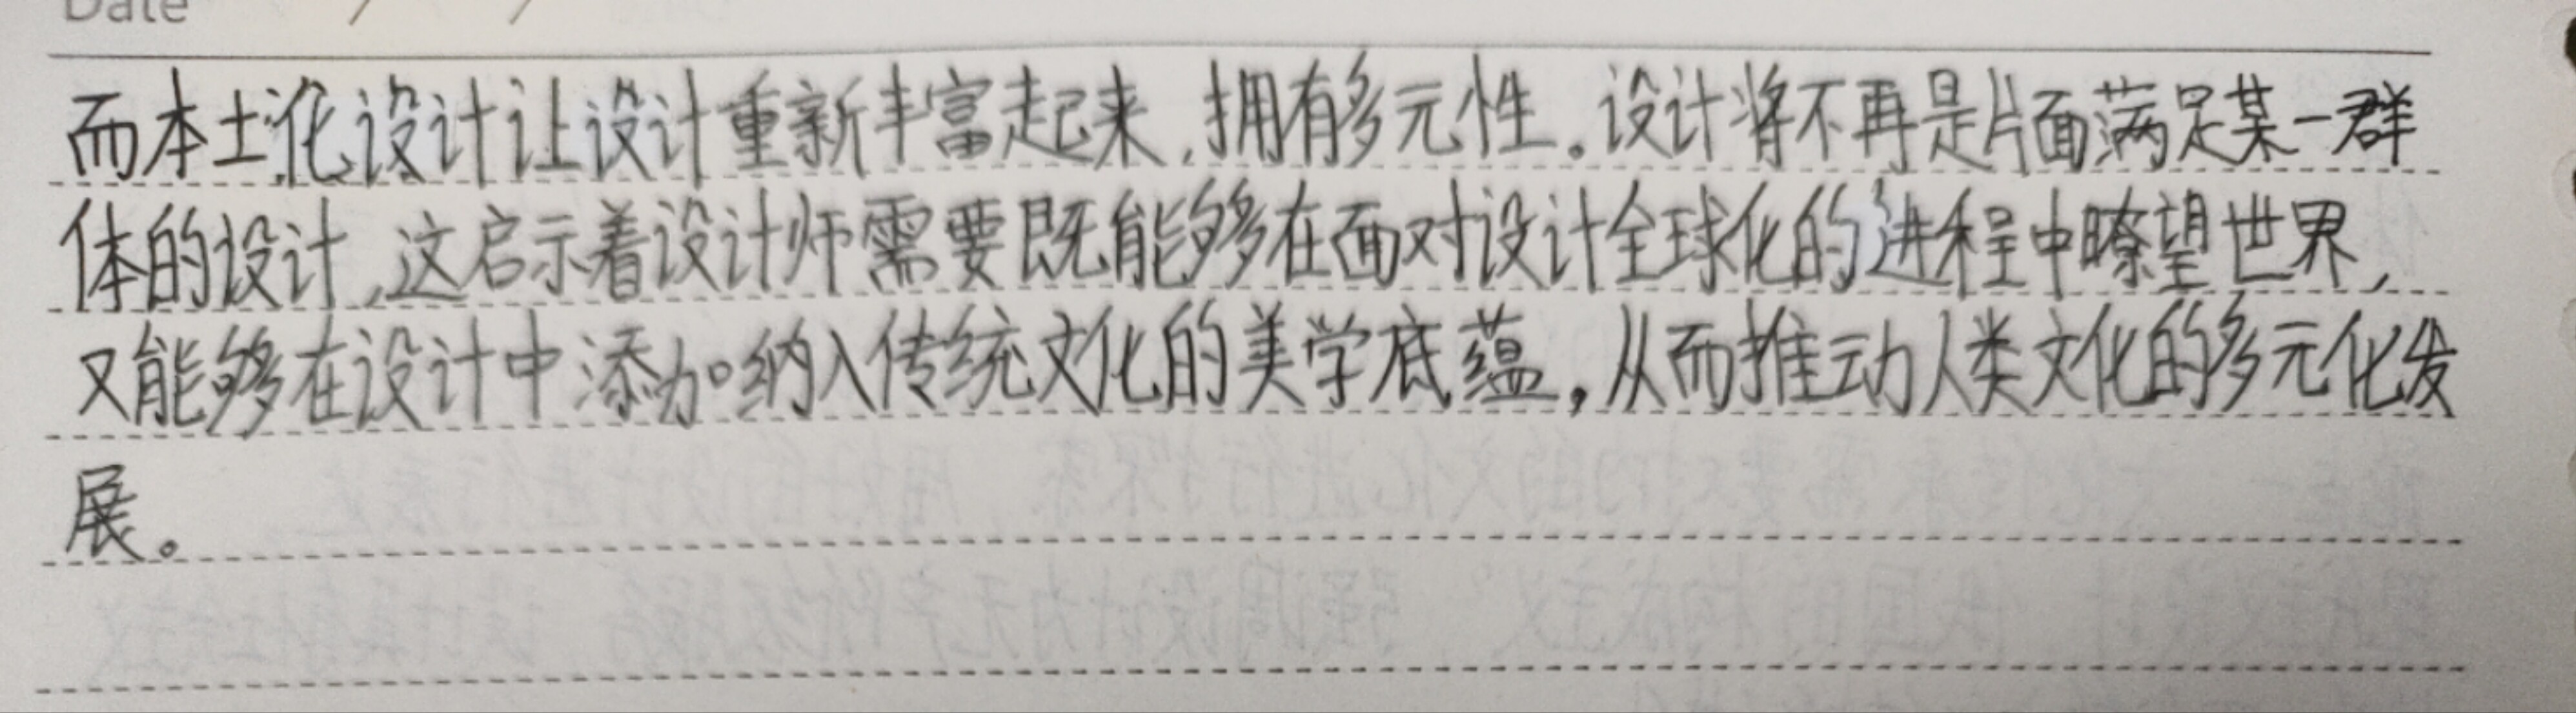 Date / /
而本土化设计让设计重新丰富起来,拥有多元性。设计将不再是片面满足某一群
体的设计,这启示着设计师需要既能够在面对设计全球化的进程中瞭望世界,
又能够在设计中添加纳入传统文化的美学底蕴,从而推动人类文化的多元化发
展。